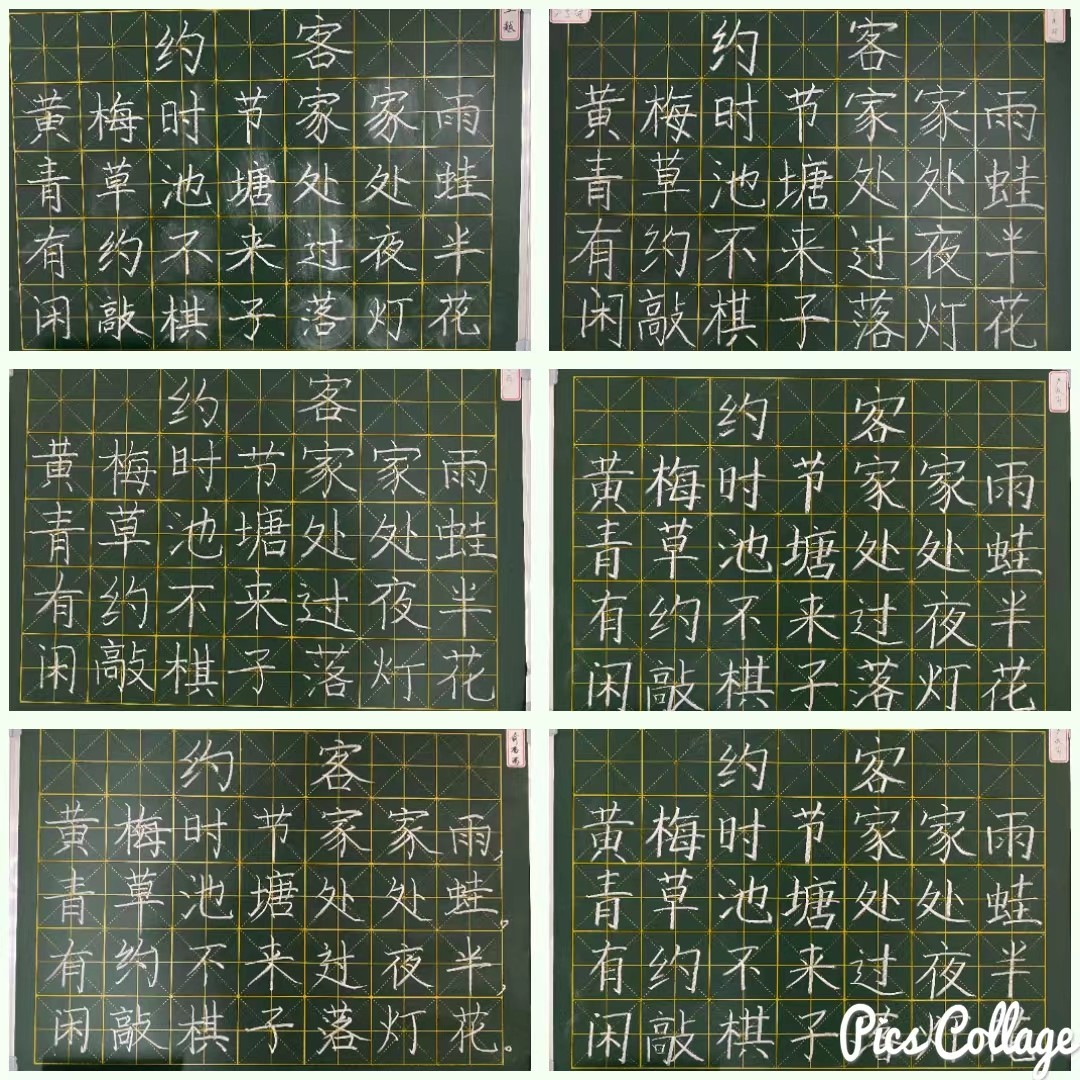 约客
黄梅时节家家雨
青草池塘处处蛙
有约不来过夜半
闲敲棋子落灯花
约客
黄梅时节家家雨
青草池塘处处蛙
有约不来过夜半
闲敲棋子落灯花
约客
黄梅时节家家雨
青草池塘处处蛙
有约不来过夜半
闲敲棋子落灯花
约客
黄梅时节家家雨
青草池塘处处蛙
有约不来过夜半
闲敲棋子落灯花
约客
黄梅时节家家雨,
青草池塘处处蛙。
有约不来过夜半,
闲敲棋子落灯花。
约客
黄梅时节家家雨
青草池塘处处蛙
有约不来过夜半
闲敲棋子
Pics Collage